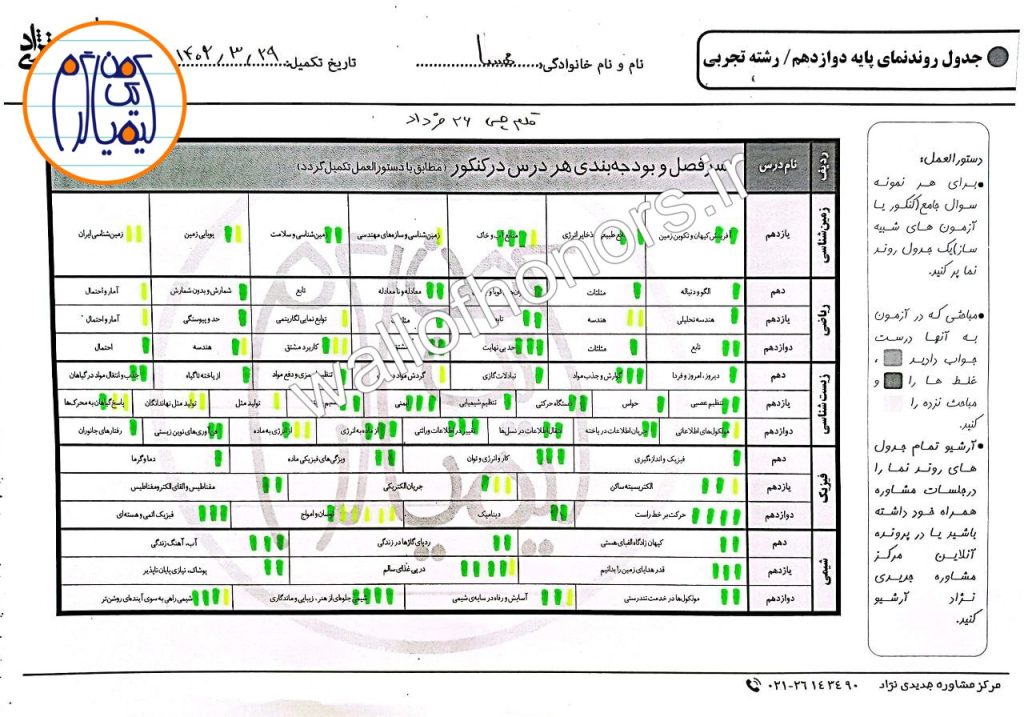 جدول روندنمای پایه دوازدهم/ رشته تجربی
نام و نام خانوادگی:
تاریخ تکمیل: ۱۴۰۲/۳/۲۹
کمپین
یک
کیمیاگرم
قلم چی ۲۶ خرداد
دستورالعمل:
•برای هر نمونه
سوال جامع(کنکور یا
آزمون های شبیه
ساز)یک جدول روند
نما پر کنید.
•مباحثی که در آزمون
به آنها درست
جواب دادید ،
غلط ها را و
مباحث نزده را
کنید.
•آرشیو تمام جدول
های روند نما را
درجلسات مشاوره
همراه خود داشته
باشید یا در پرونده
آنلاین مرکز
مشاوره جدیدی
نژاد آرشیو
کنید.
ردیف نام درس سرفصل و بودجه‌بندی هر درس در کنکور (مطابق با دستورالعمل تکمیل گردد)
زمین‌شناسی
یازدهم آفرینش کیهان و تکوین زمین ذخایر انرژی منابع آب و خاک زمین‌شناسی و سازه‌های مهندسی زمین‌شناسی و سلامت پویایی زمین زمین‌شناسی ایران
ریاضی
دهم الگو و دنباله مثلثات معادله و نامعادله تابع شمارش، بدون شمارش آمار و احتمال
یازدهم هندسه تحلیلی هندسه تابع توابع نمایی لگاریتمی حد و پیوستگی آمار و احتمال
دوازدهم تابع مثلثات حد بی‌نهایت مشتق کاربرد مشتق هندسه احتمال
زیست شناسی
دهم دیروز، امروز و فردا گوارش و جذب مواد تبادلات گازی گردش مواد تنظیم اسمزی و دفع مواد از یاخته تا گیاه جذب و انتقال مواد در گیاهان
یازدهم تنظیم عصبی حواس دستگاه حرکتی تنظیم شیمیایی ایمنی تولید مثل تولید مثل نهاندانگان پاسخ گیاهان به محرک‌ها
دوازدهم مولکول‌های اطلاعاتی جریان اطلاعات در یاخته انتقال اطلاعات در نسل‌ها تغییر در اطلاعات وراثتی از ماده به انرژی از انرژی به ماده فناوری‌های نوین زیستی رفتارهای جانوران
فیزیک
دهم فیزیک و اندازه‌گیری کار و انرژی و توان ویژگی‌های فیزیکی ماده دما و گرما
یازدهم الکتریسیته ساکن جریان الکتریکی مغناطیس و القای الکترومغناطیس
دوازدهم حرکت بر خط راست دینامیک نوسان و امواج فیزیک اتمی و هسته‌ای
شیمی
دهم کیهان زادگاه الفبای هستی ردپای گازها در زندگی آب، آهنگ زندگی
یازدهم قدر هدایای زمین را بدانیم در پی غذای سالم پوشاک، نیازی پایان ناپذیر
دوازدهم مولکول‌ها در خدمت تندرستی آسایش و رفاه در سایه‌ی شیمی شیمی جلوه‌ای از هنر، زیبایی و ماندگاری شیمی راهی به سوی آینده‌ای روشن‌تر
wallofhonors.ir
مرکز مشاوره جدیدی نژاد ۰۲۱-۲۶ ۱۴ ۳۴ ۹۰